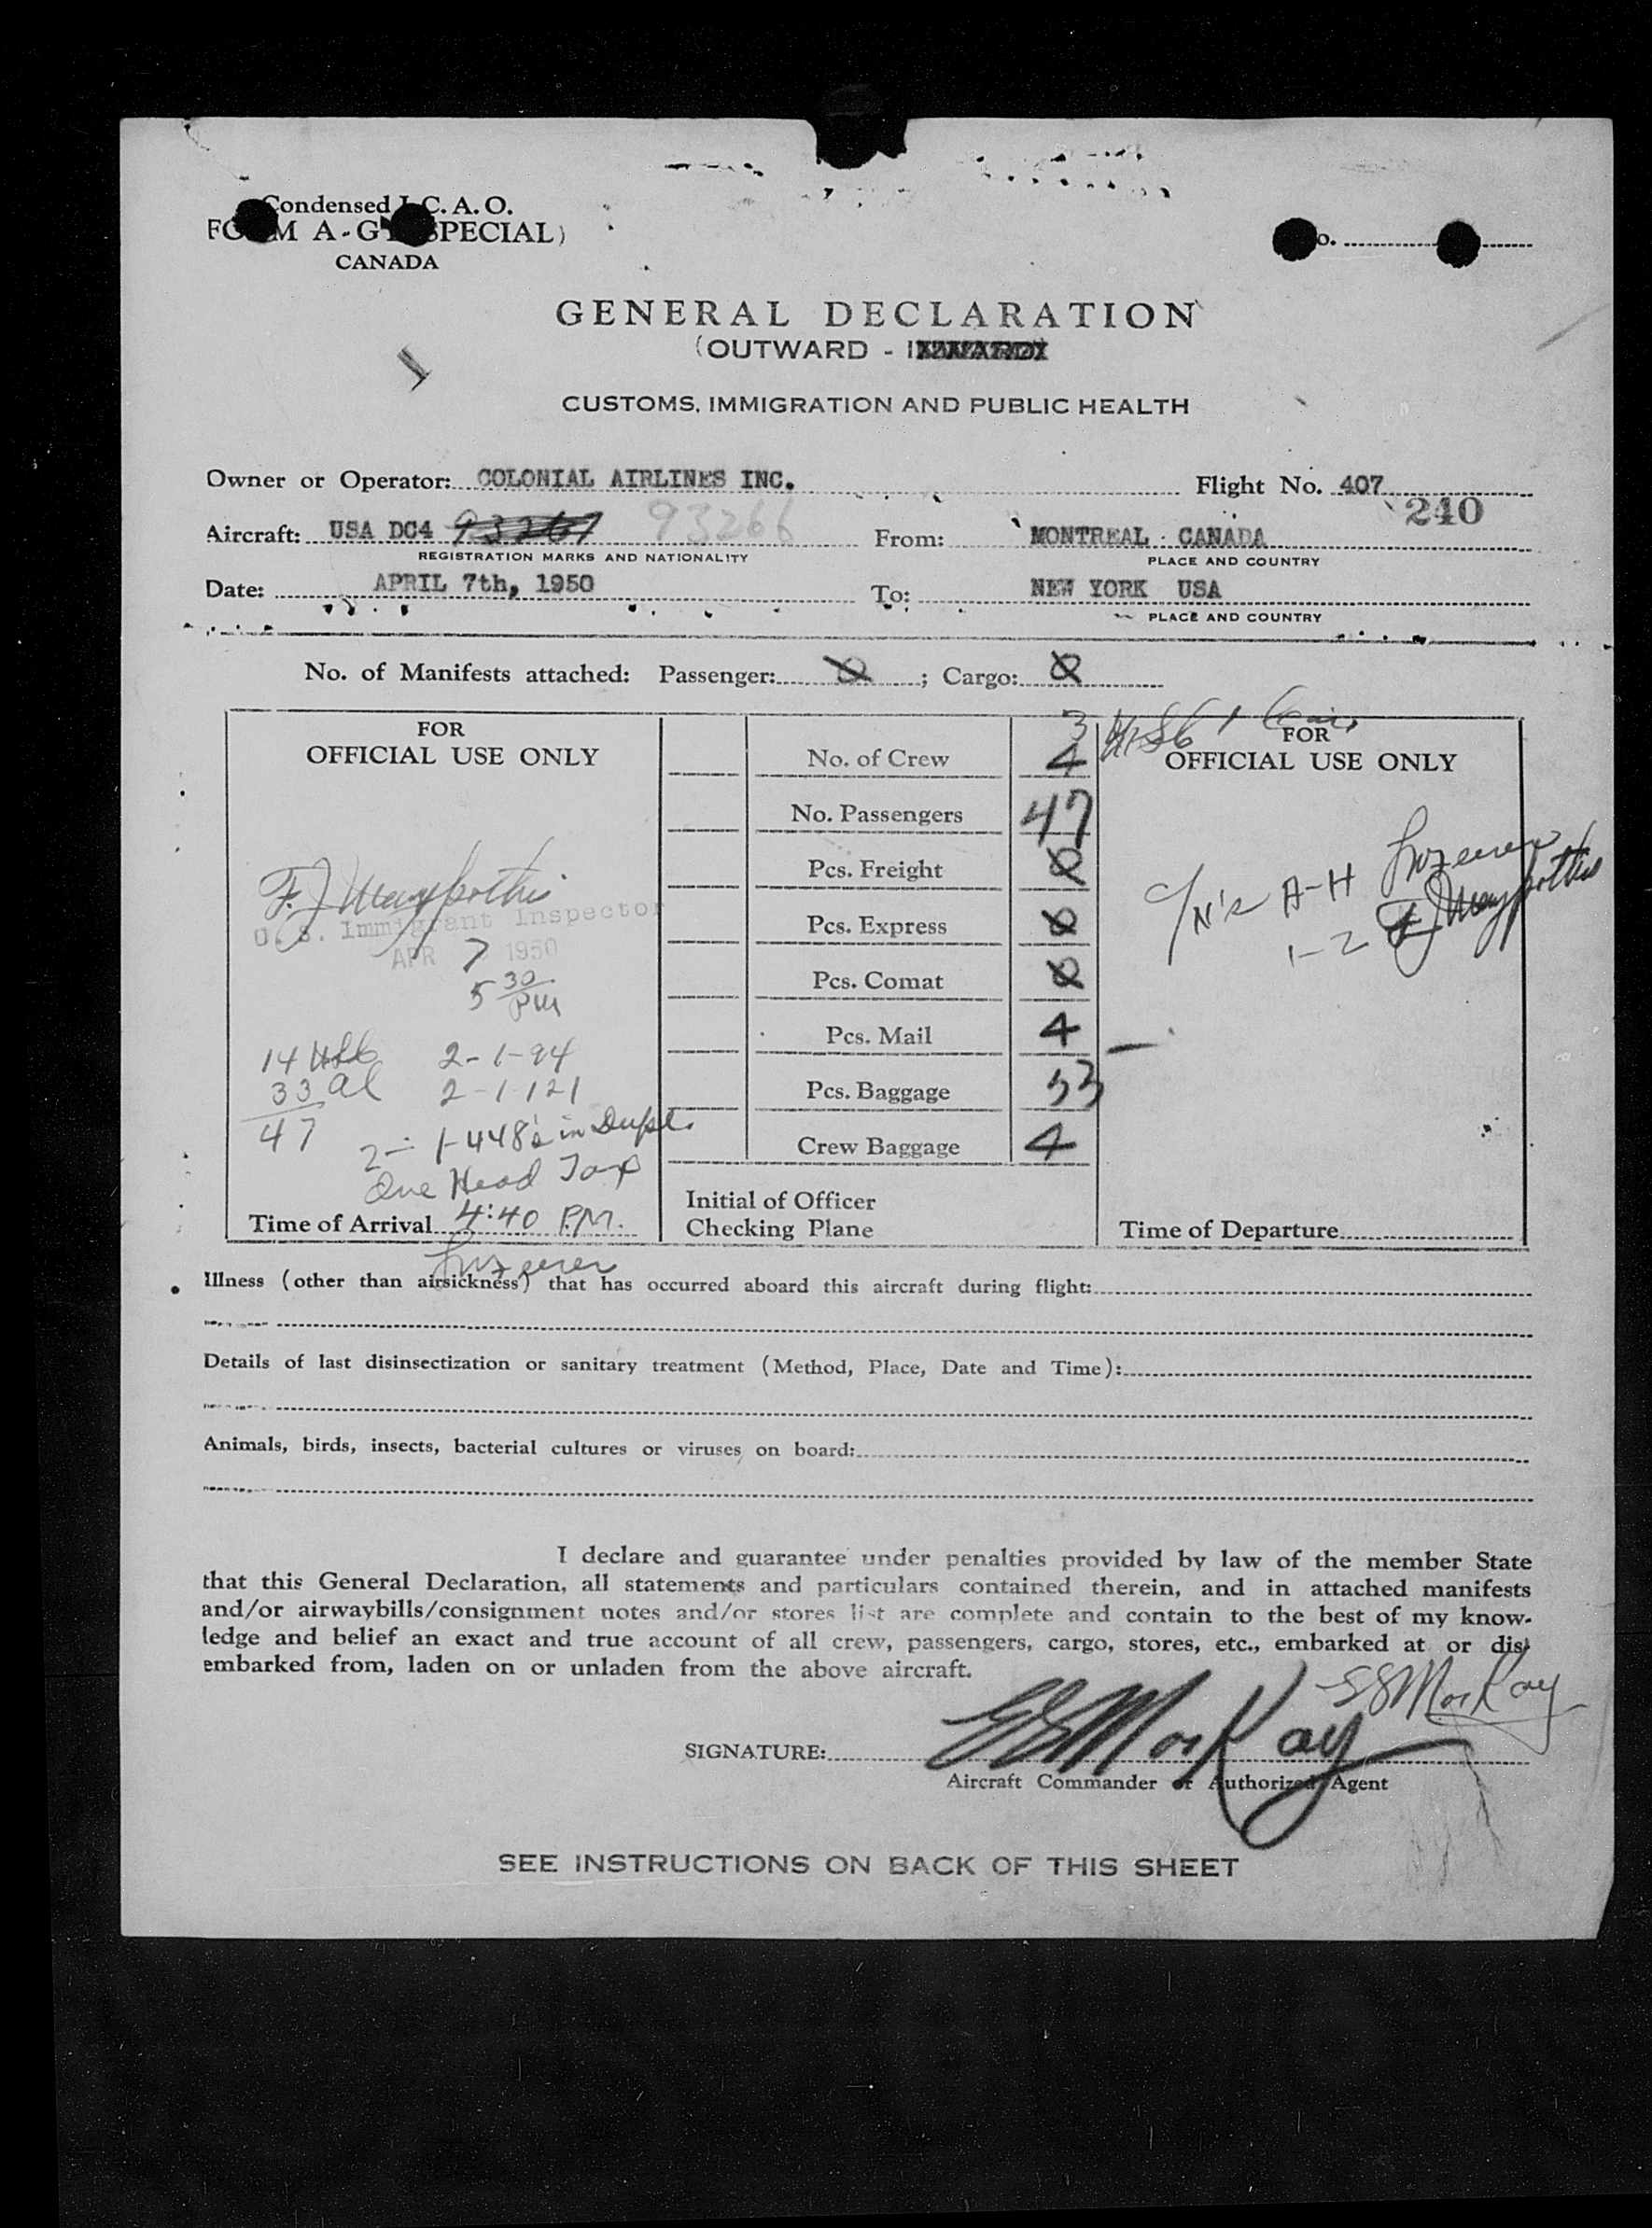 Condensed I.C.A.O.
CANADA
GENERAL DECLARATION
(OUTWARD -
CUSTOMS, IMMIGRATION AND PUBLIC HEALTH
Owner or Operator: COLONIAL AIRLINES INC. Flight No. 407
240
Aircraft: USA DC4 93267 93266 From: MONTREAL CANADA
REGISTRATION MARKS AND NATIONALITY PLACE AND COUNTRY
Date: APRIL 7th, 1950 To: NEW YORK USA
PLACE AND COUNTRY
No. of Manifests attached: Passenger: 0 ; Cargo: 0
FOR
OFFICIAL USE ONLY
U. S. Immigrant Inspector
APR 7 1950
5 30 PM
14 USC 2-1-94
33 al 2-1-121
47 2- 1-448's in Dupl.
One Head Tax
Time of Arrival 4:40 P.M.
3
No. of Crew 4
No. Passengers 47
Pcs. Freight 0
Pcs. Express 0
Pcs. Comat 0
Pcs. Mail 4
Pcs. Baggage 53
Crew Baggage 4
Initial of Officer
Checking Plane
FOR
OFFICIAL USE ONLY
A-H
1-2
Time of Departure
Illness (other than airsickness) that has occurred aboard this aircraft during flight:
Details of last disinsectization or sanitary treatment (Method, Place, Date and Time):
Animals, birds, insects, bacterial cultures or viruses on board:
I declare and guarantee under penalties provided by law of the member State
that this General Declaration, all statements and particulars contained therein, and in attached manifests
and/or airwaybills/consignment notes and/or stores list are complete and contain to the best of my know-
ledge and belief an exact and true account of all crew, passengers, cargo, stores, etc., embarked at or dis-
embarked from, laden on or unladen from the above aircraft.
SIGNATURE: MacKay
MacKay
Aircraft Commander or Authorized Agent
SEE INSTRUCTIONS ON BACK OF THIS SHEET